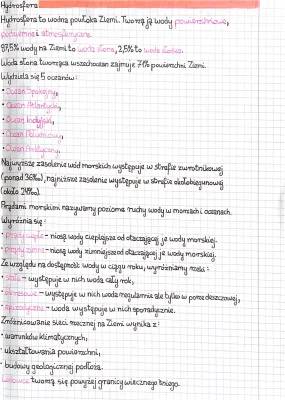 Hydrosfera
Hydrosfera to wodna powłoka Ziemi. Tworzą ją wody powierzchniowe,
podziemne i atmosferyczne.
97,5% wody na Ziemi to woda słona, 2,5% to woda słodka.
Woda słona tworząca wszechocean zajmuje 71% powierzchni Ziemi.
Wydziela się 5 oceanów:
• Ocean Spokojny,
• Ocean Atlantycki,
• Ocean Indyjski,
• Ocean Południowy,
• Ocean Arktyczny.
Najwyższe zasolenie wód morskich występuje w strefie zwrotnikowej
(ponad 36‰), najniższe zasolenie występuje w strefie okołobiegunowej
(około 24‰).
Prądami morskimi nazywamy poziome ruchy wody w morzach i oceanach.
Wyróżnia się:
• prądy ciepłe - niosą wody cieplejsze od otaczającej je wody morskiej.
• prądy zimne - niosą wody zimniejsze od otaczającej je wody morskiej.
Ze względu na dostępność wody w ciągu roku, wyróżniamy rzeki:
• stałe - występuje w nich woda cały rok,
• okresowe - występuje w nich woda regularnie ale tylko w porze deszczowej,
• epizodyczne - woda występuje w nich sporadycznie.
Zróżnicowanie sieci rzecznej na Ziemi wynika z:
• warunków klimatycznych,
• ukształtowania powierzchni,
• budowy geologicznej podłoża.
Lodowce tworzą się powyżej granicy wiecznego śniegu.